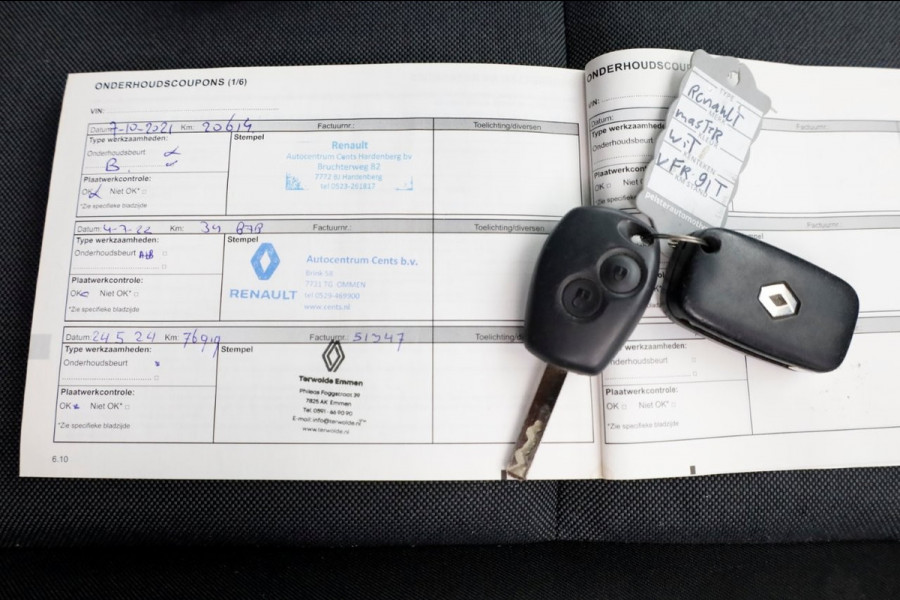 ONDERHOUDSCOUPONS (1/6)
VIN:
Datum: 7-10-2021 Km: 20614 Factuurnr.: Toelichting/diversen
Type werkzaamheden: Stempel
Onderhoudsbeurt
B.
Plaatwerkcontrole:
OK Niet OK*
*Zie specifieke bladzijde
Renault
Autocentrum Cents Hardenberg bv
Bruchterweg 82
7772 BJ Hardenberg
tel.0523-261817
Datum: 4-7-22 Km: Factuurnr.: Toelichting/diversen
Type werkzaamheden: Stempel
Onderhoudsbeurt A+B
Plaatwerkcontrole:
OK Niet OK*
*Zie specifieke bladzijde
RENAULT
Autocentrum Cents b.v.
Brink 58
7731 TG OMMEN
tel.0529-469300
www.cents.nl
Datum: 24 5 24 Km: Factuurnr.:
Type werkzaamheden: Stempel
Onderhoudsbeurt
Plaatwerkcontrole:
OK Niet OK*
*Zie specifieke bladzijde
Terwolde Emmen
7825 AK Emmen
www.terwolde.nl
6.10
ONDERHOUDSCOU
VIN:
Datum:
Type werkzaamhe
Onderhoudsbeurt
Plaatwerkcon
OK Niet
*Zie specifieke
Renault
master
wit
VFR-91-T
werkzaamheden:
Onderhoudsbeurt
Plaatwerkcontrole:
OK Niet OK*
*Zie specifieke bladzijde